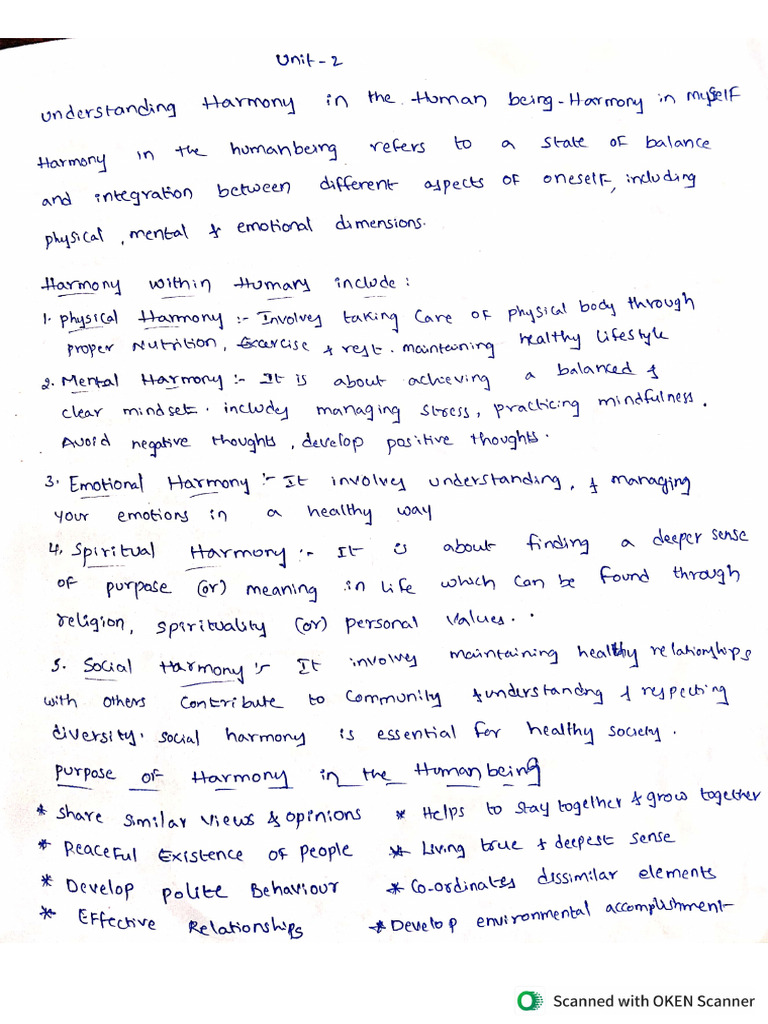 Unit - 2
Understanding Harmony in the Human being - Harmony in myself
Harmony in the humanbeing refers to a state of balance
and integration between different aspects of oneself, including
physical, mental & emotional dimensions.
Harmony within Humans include :
1. Physical Harmony :- Involves taking care of physical body through
proper Nutrition, Exercise & rest. maintaining healthy lifestyle
2. Mental Harmony :- It is about achieving a balanced &
clear mindset. includes managing stress, practicing mindfulness.
Avoid negative thoughts, develop positive thoughts.
3. Emotional Harmony :- It involves understanding, & managing
your emotions in a healthy way
4. Spiritual Harmony :- It is about finding a deeper sense
of purpose (or) meaning in life which can be found through
religion, spirituality (or) personal values.
5. Social Harmony :- It involves maintaining healthy relationships
with others contribute to community & understanding & respecting
diversity. social harmony is essential for healthy society.
Purpose of Harmony in the Human being
* Share similar views & opinions * Helps to stay together & grow together
* Peaceful Existence of people * Living true & deepest sense
* Develop polite Behaviour * Co-ordinates dissimilar elements
* Effective Relationships * Develop environmental accomplishment
Scanned with OKEN Scanner